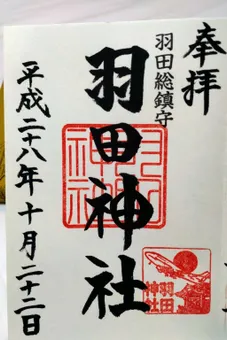 奉拝
羽田総鎮守
羽田神社
平成二十八年十月二十二日
羽田神社
羽田
神社